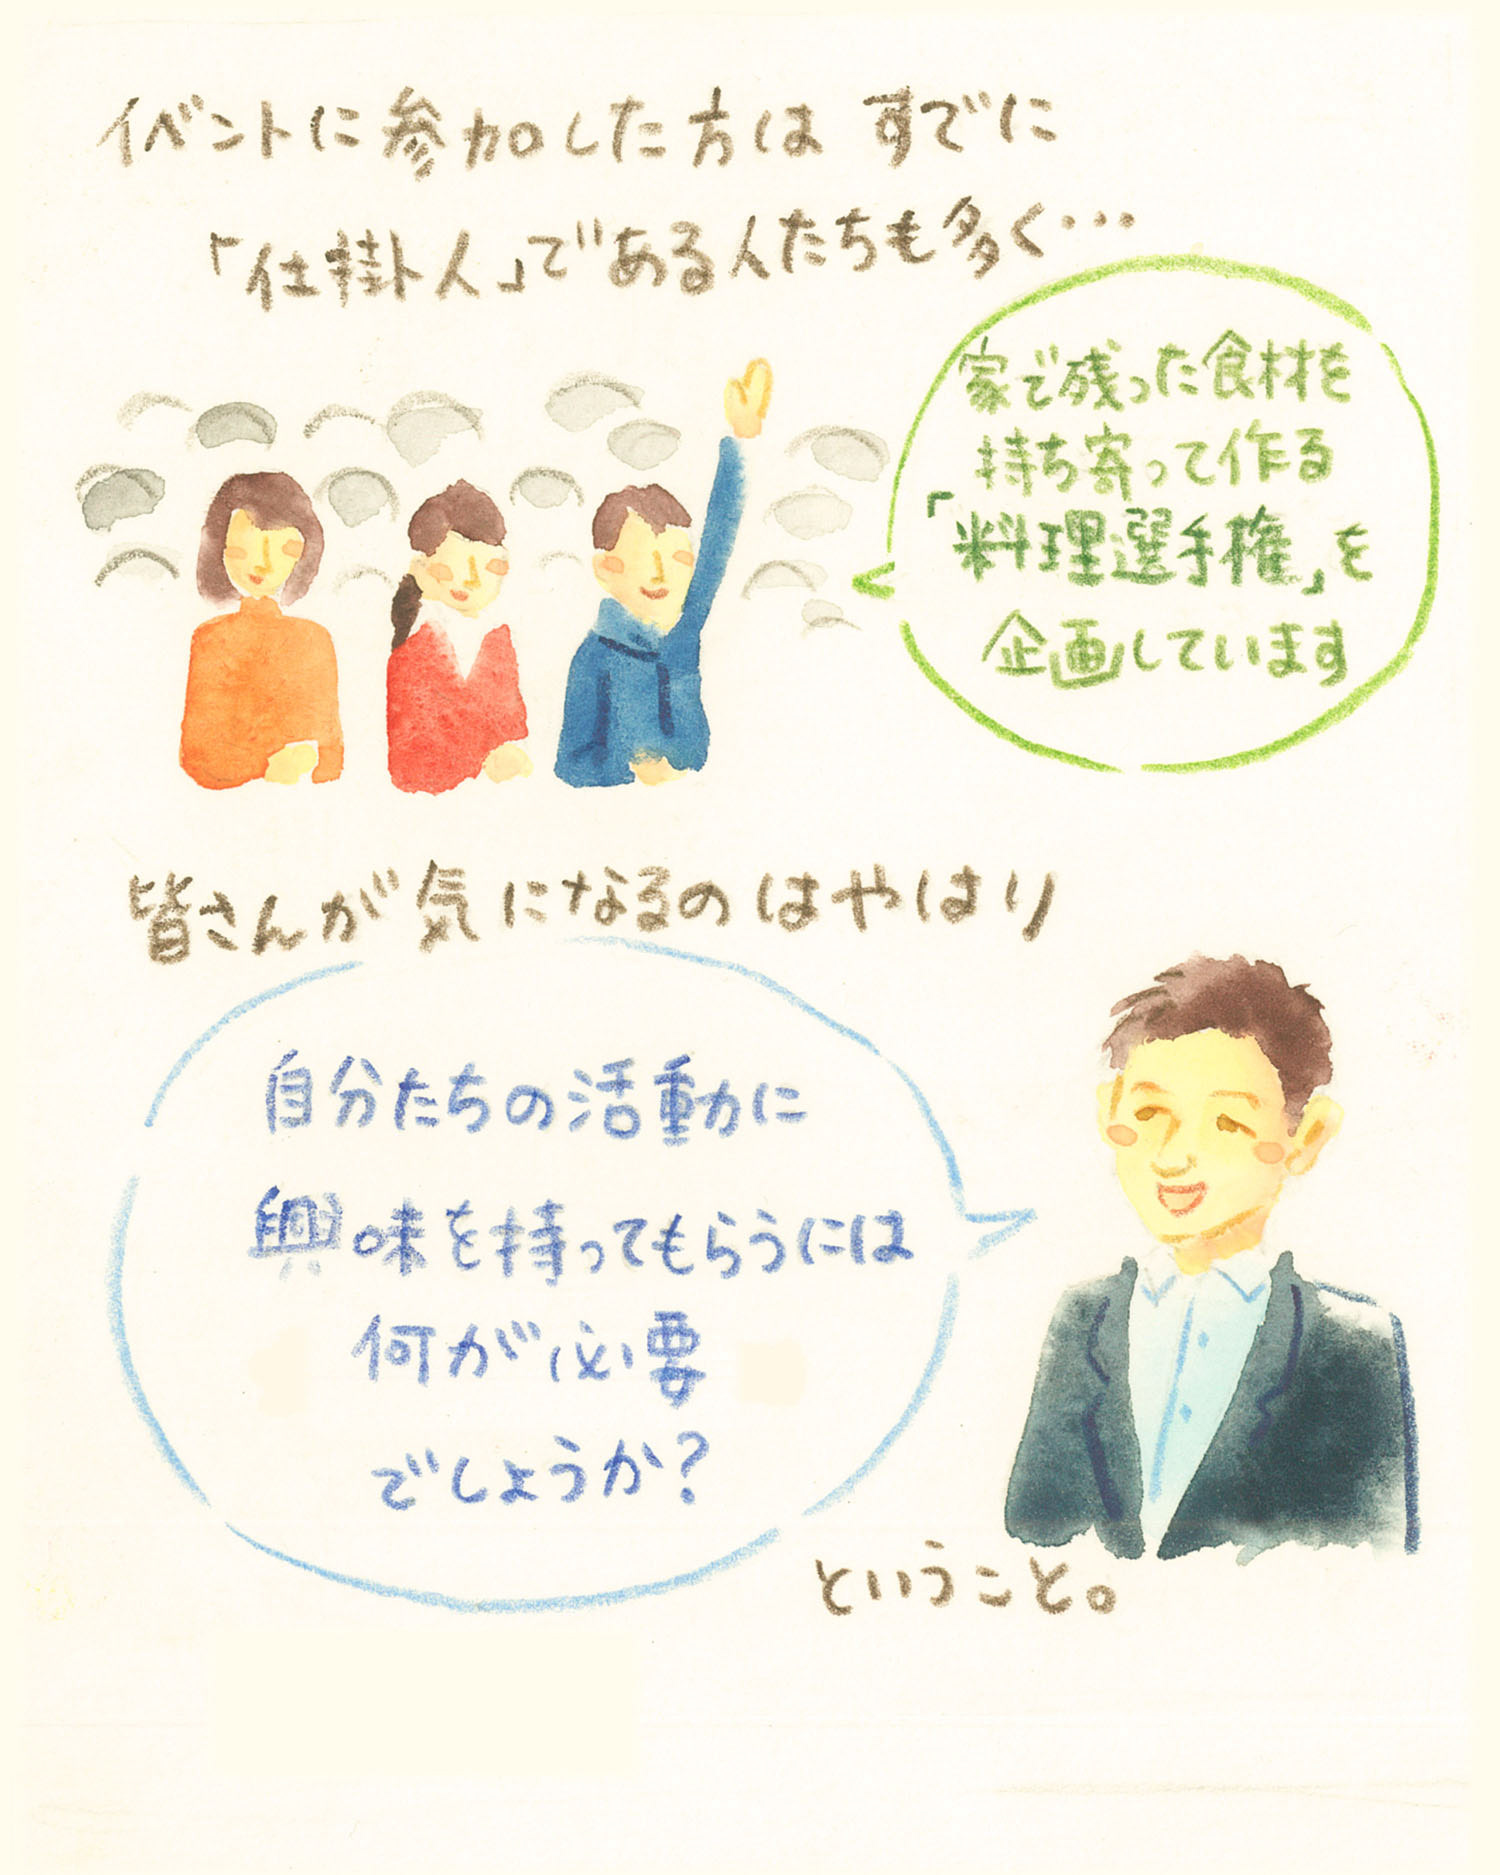 イベントに参加した方は すでに
「仕掛人」である人たちも多く…
家で残った食材を
持ち寄って作る
「料理選手権」を
企画しています
皆さんが気になるのはやはり
自分たちの活動に
興味を持ってもらうには
何が必要
でしょうか?
ということ。